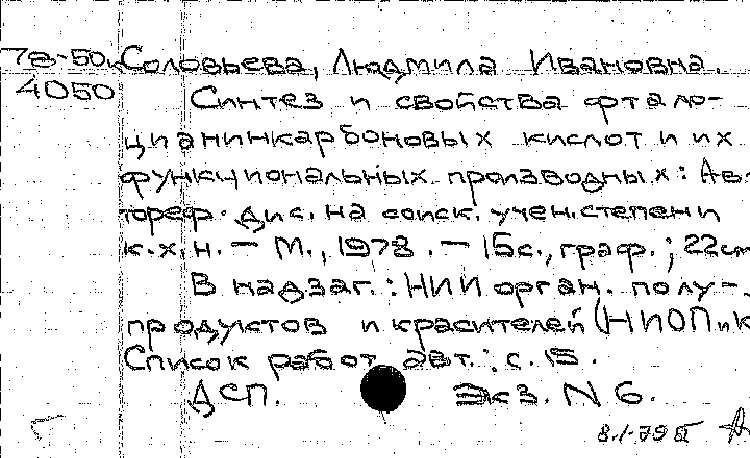 78-50к Соловьева, Людмила Ивановна.
4050 Синтез и свойства фтало-
цианинкарбоновых кислот и их
функциональных производных: Ав-
тореф. дис. на соиск. учен. степени
к.х.н. — М., 1978. — 15с., граф.; 22см
В надзаг.: НИИ орган. полу-
продуктов и красителей (НИОПиК
Список работ авт.: с. 15.
ДСП. Экз. N 6.